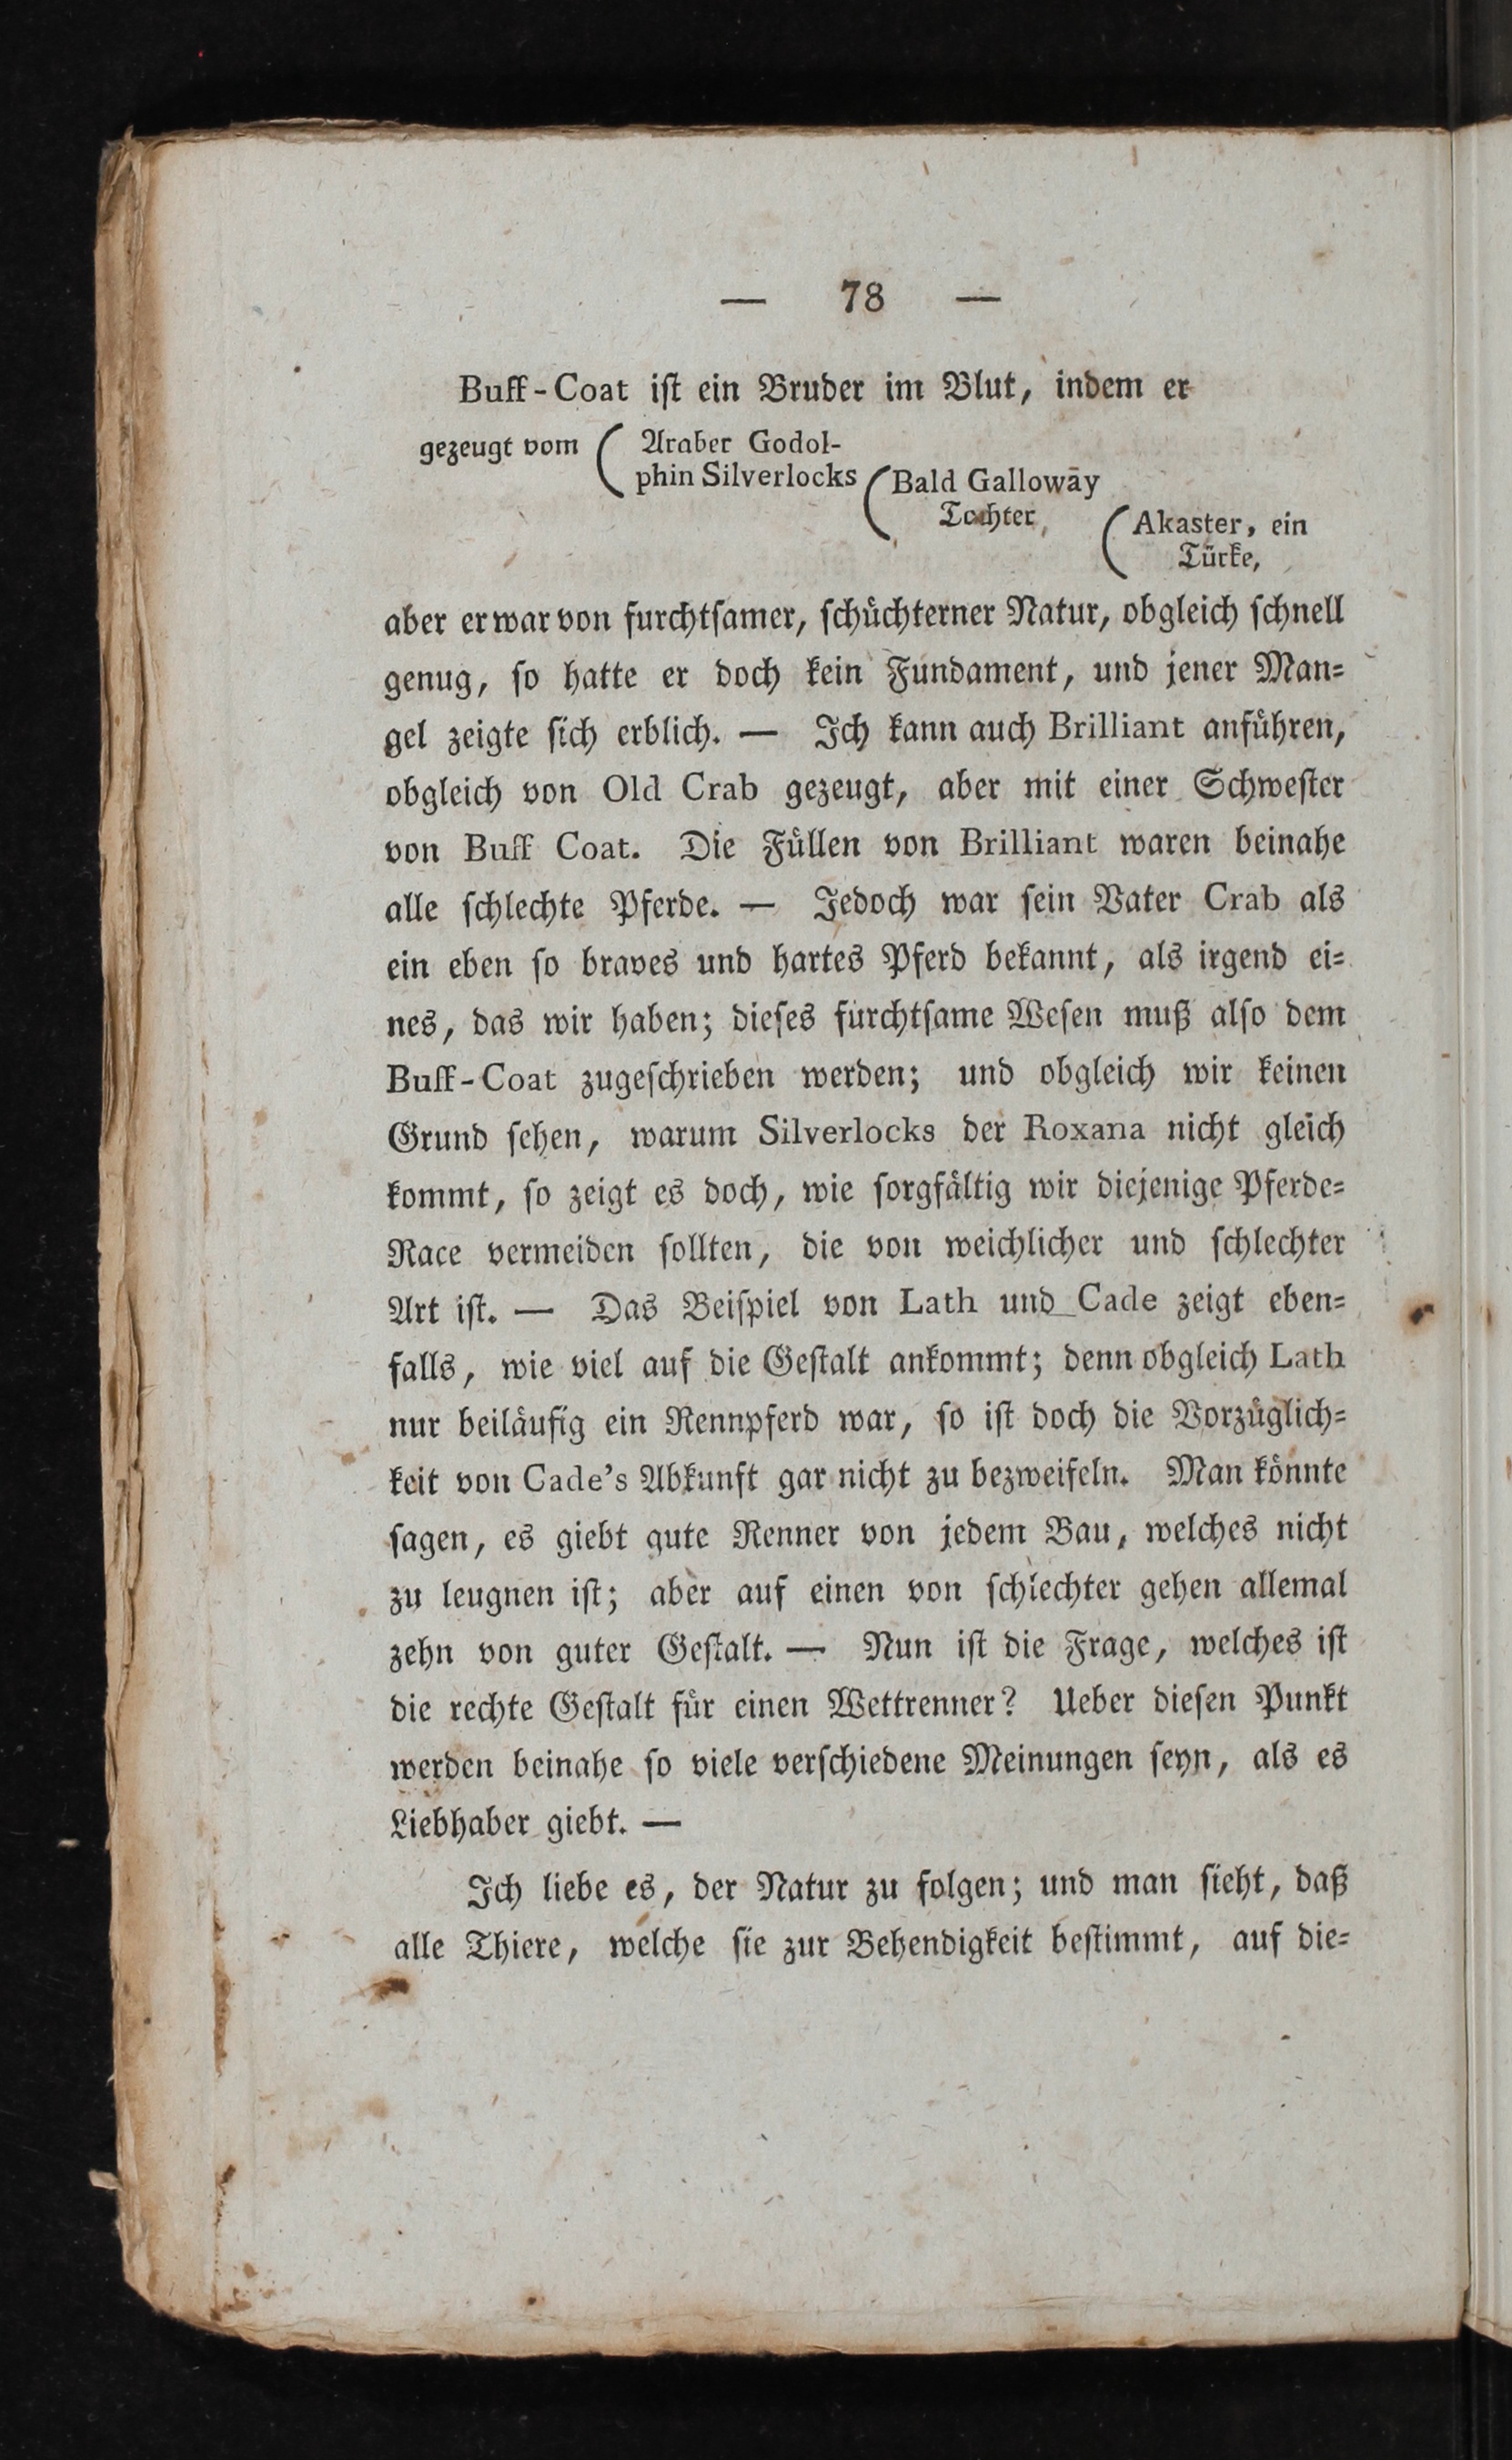 — 78 —
Buff-Coat iſt ein Bruder im Blut, indem er
gezeugt vom ( Araber Godol-
phin Silverlocks ( Bald Galloway
Tochter, ( Akaster, ein
Türke,
aber er war von furchtſamer, ſchüchterner Natur, obgleich ſchnell
genug, ſo hatte er doch kein Fundament, und jener Man-
gel zeigte ſich erblich. — Ich kann auch Brilliant anführen,
obgleich von Old Crab gezeugt, aber mit einer Schweſter
von Buff Coat. Die Füllen von Brilliant waren beinahe
alle ſchlechte Pferde. — Jedoch war ſein Vater Crab als
ein eben ſo braves und hartes Pferd bekannt, als irgend ei-
nes, das wir haben; dieſes furchtſame Weſen muß alſo dem
Buff-Coat zugeſchrieben werden; und obgleich wir keinen
Grund ſehen, warum Silverlocks der Roxana nicht gleich
kommt, ſo zeigt es doch, wie ſorgfältig wir diejenige Pferde-
Race vermeiden ſollten, die von weichlicher und ſchlechter
Art iſt. — Das Beiſpiel von Lath und Cade zeigt eben-
falls, wie viel auf die Geſtalt ankommt; denn obgleich Lath
nur beiläufig ein Rennpferd war, ſo iſt doch die Vorzüglich-
keit von Cade's Abkunft gar nicht zu bezweifeln. Man könnte
ſagen, es giebt gute Renner von jedem Bau, welches nicht
zu leugnen iſt; aber auf einen von ſchlechter gehen allemal
zehn von guter Geſtalt. — Nun iſt die Frage, welches iſt
die rechte Geſtalt für einen Wettrenner? Ueber dieſen Punkt
werden beinahe ſo viele verſchiedene Meinungen ſeyn, als es
Liebhaber giebt. —
Ich liebe es, der Natur zu folgen; und man ſieht, daß
alle Thiere, welche ſie zur Behendigkeit beſtimmt, auf die-